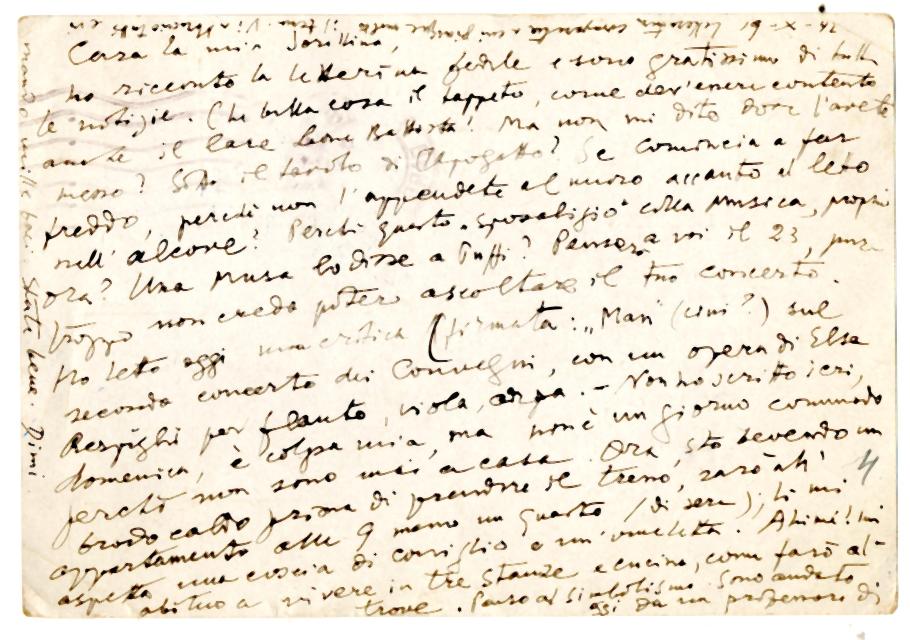 Cara la mia Jorillina,
ho ricevuto la letterina fedele e sono gratissimo di tutte
le notizie. Che bella cosa il tappeto, come dev'essere contento
anche il Lare Leone Battista! Ma non mi dite dove l'avete
messo? Sotto il tavolo di ? Se comincia a far
freddo, perché non l'appendete al muro accanto al letto
nell'alcove? Perché questo "sposalizio" colla Musica, proprio
ora? Una Musa lo disse a Puffi? Penserò a voi il 23, pur
troppo non credo potere ascoltare il tuo concerto.
Ho letto oggi una critica (firmata: "Man" (cini?) sul
secondo concerto dei Convegni, con un opera di Elsa
Respighi per flauto, viola, arpa. - Non ho scritto ieri,
domenica, è colpa mia, ma non è un giorno commodo
perchè non sono mai a casa. Ora, sto bevendo un
brodo caldo prima di prendere il treno, sarò all'
appartamento alle 9 meno un quarto (di sera), lì mi
aspetta una coscia di coniglio e un'omeletta. Ahimè! mi
abituo a vivere in tre stanze e cucina, come farò al-
trove. Penso al simbolismo. Sono andato
oggi da un professore di
mille baci. State bene. Dimi
24-X-61
4